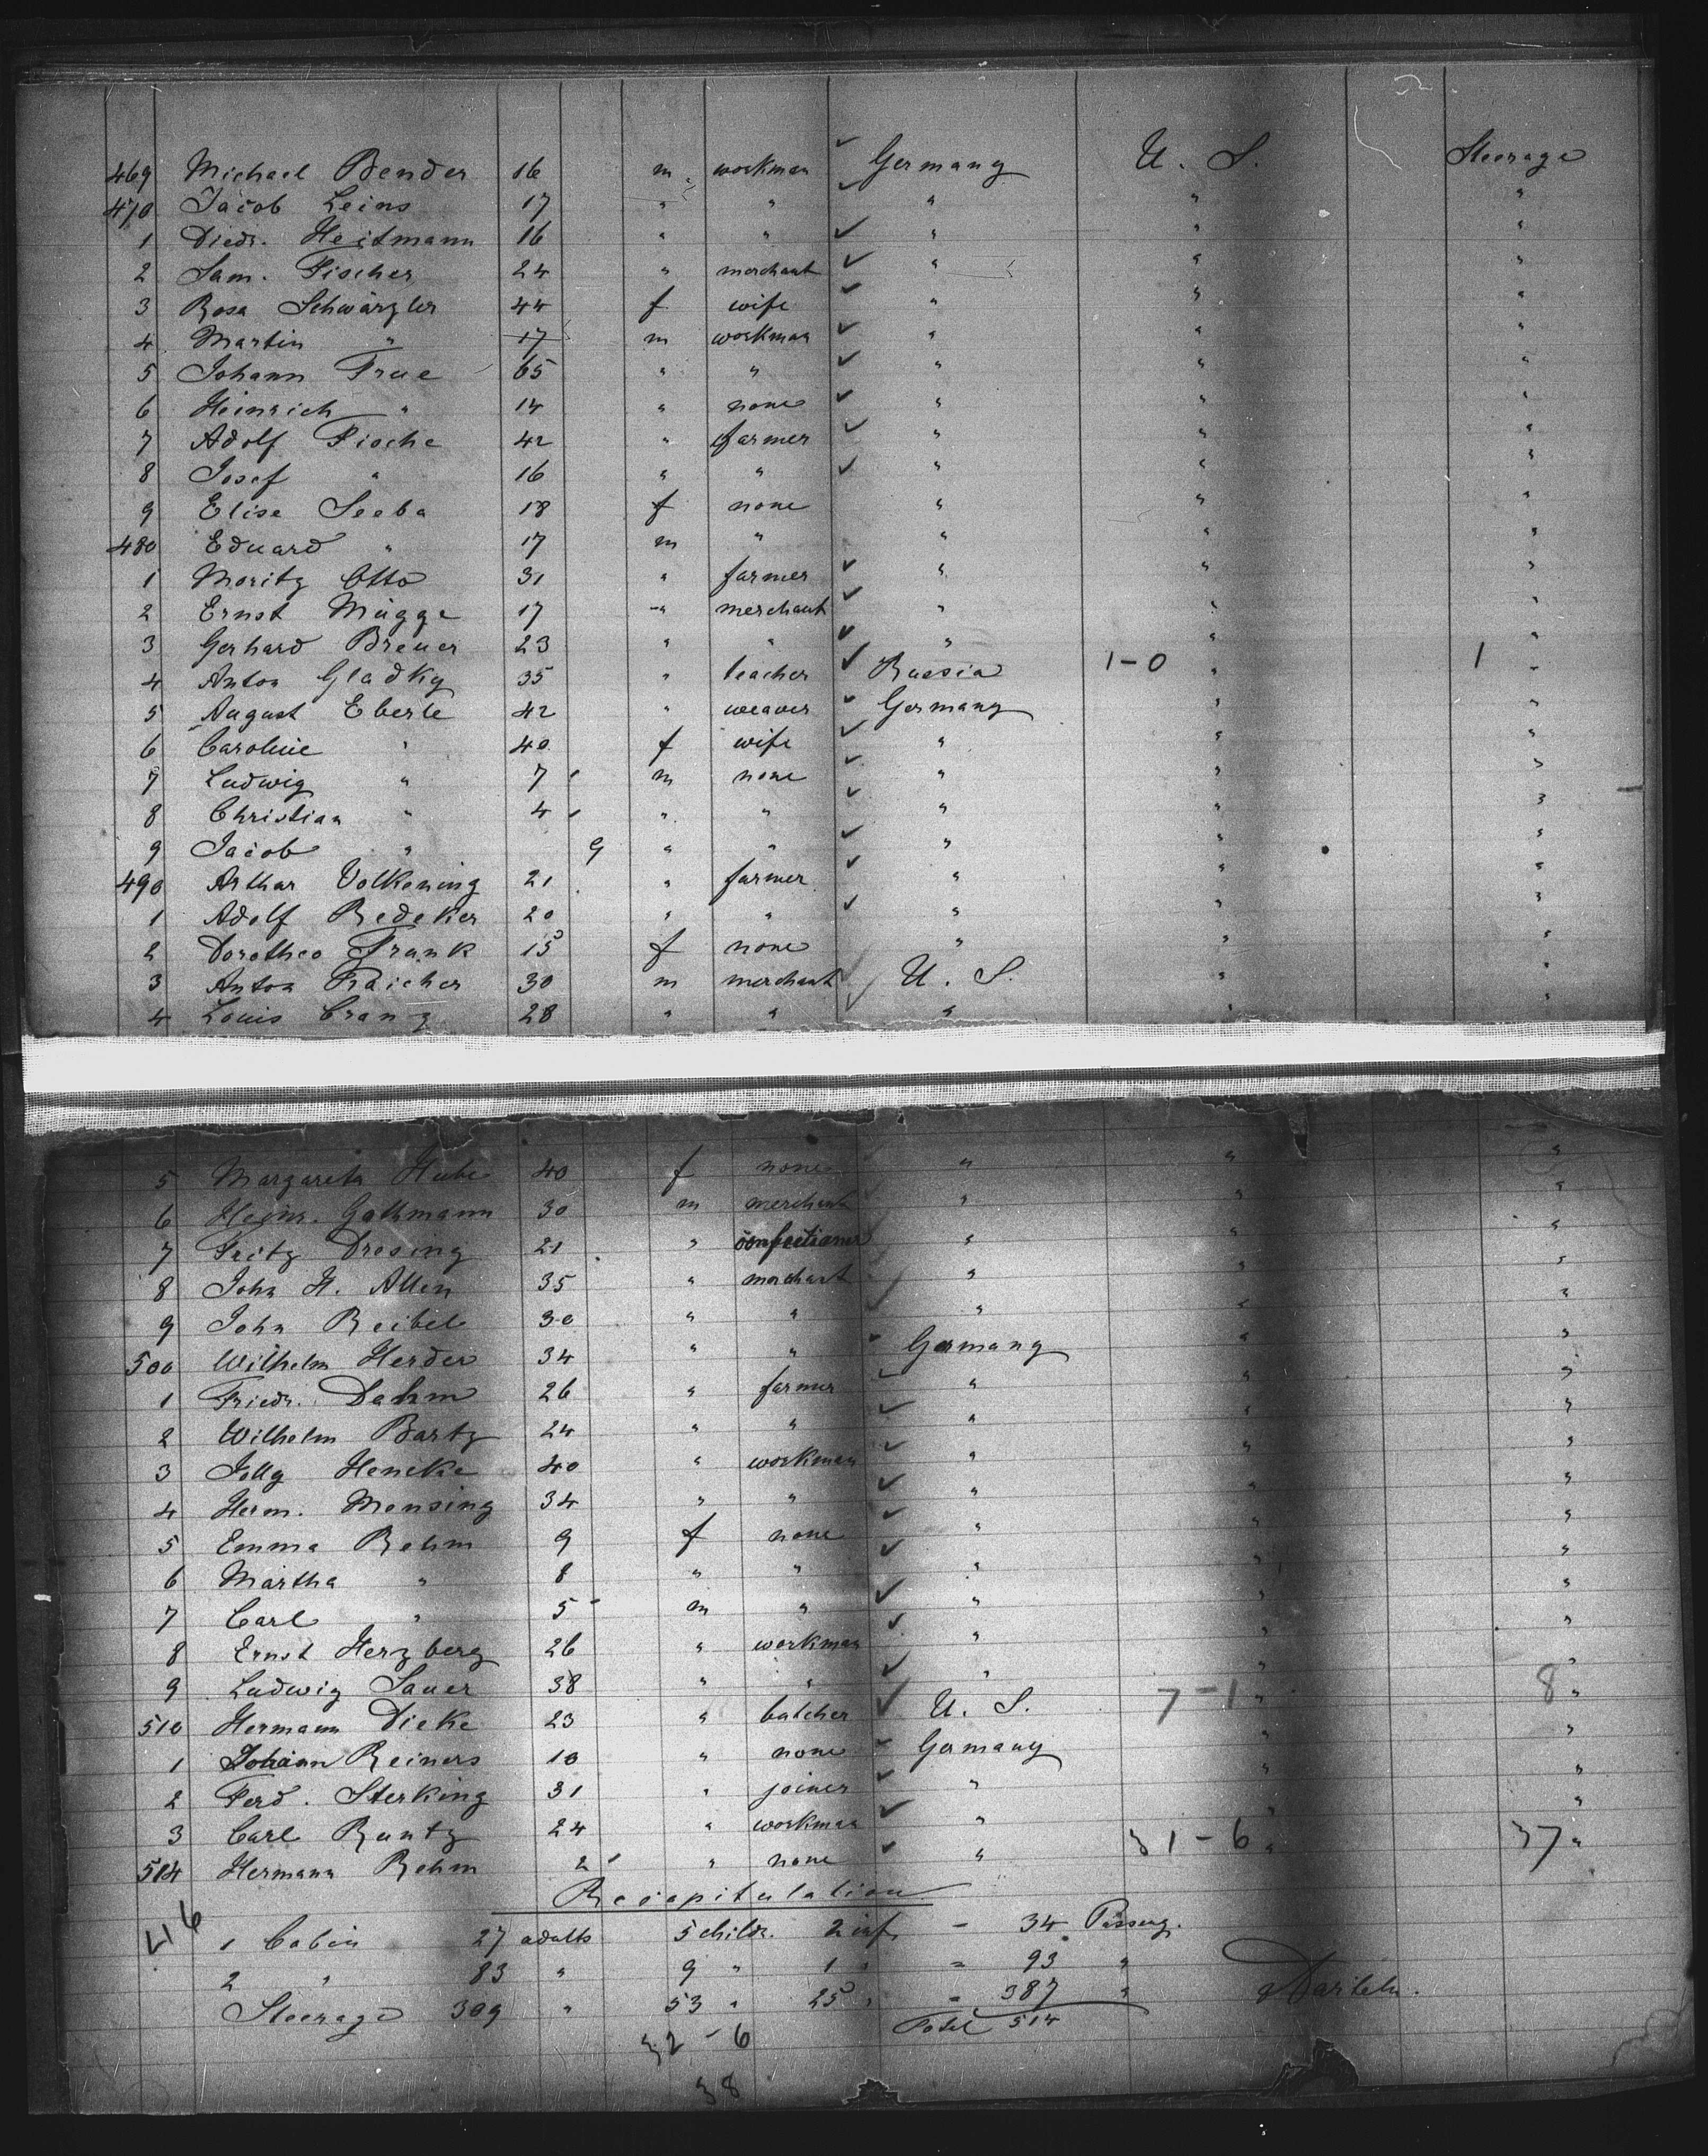 469 Michael Bender 16 m workman Germany U. S. Steerage
470 Jacob Leins 17 " " " " "
1 Diedr. Heitmann 16 " " " " "
2 Sam. Fischer 24 " merchant " " "
3 Rosa Schwärzler 44 f wife " " "
4 Martin " 17 m workman " " "
5 Johann Frue 65 " " " " "
6 Heinrich " 14 " none " " "
7 Adolf Fioche 42 " farmer " " "
8 Josef " 16 " " " " "
9 Elise Seeba 18 f none " " "
480 Eduard " 17 m " " " "
1 Moritz Otto 31 " farmer " " "
2 Ernst Mügge 17 " merchant " " "
3 Gerhard Breuer 23 " " " " "
4 Anton Gladky 35 " teacher Russia 1-0 " 1 "
5 August Eberle 42 " weaver Germany " "
6 Caroline " 40 f wife " " "
7 Ludwig " 7 m none " " "
8 Christian " 4 " " " " "
9 Jacob " 9 " " " " "
490 Arthur Volkening 21 " farmer " " "
1 Adolf Redeker 20 " " " " "
2 Dorothea Frank 15 f none " " "
3 Anton Raicher 30 m merchant U. S. " "
4 Louis Cranz 28 " " " " "
5 Margareta Hube 40 f none " " "
6 Heinr. Gathmann 30 m merchant " " "
7 Fritz Dresing 21 " confectioner " " "
8 John H. Allen 35 " merchant " " "
9 John Reibel 30 " " " " "
500 Wilhelm Herder 34 " " Germany " "
1 Friedr. Dahm 26 " farmer " " "
2 Wilhelm Bartz 24 " " " " "
3 Heneke 40 " workman " " "
4 Herm. Mensing 34 " " " " "
5 Emma Rehm 9 f none " " "
6 Martha " 8 " " " " "
7 Carl " 5 m " " " "
8 Ernst Herzberg 26 " workman " " "
9 Ludwig Sauer 38 " " " " "
510 Hermann Dieke 23 " butcher U. S. 7-1 " 8 "
1 Johann Reiners 10 " none Germany " "
2 Ferd. Sterking 31 " joiner " " "
3 Carl Runtz 24 " workman " " "
514 Hermann Rehm 2 " none " 31-6 " 37 "
Recapitulation
416
1 Cabin 27 adults 5 childr. 2 inf. - 34 Passeng.
2 " 83 " 9 " 1 " = 93 "
Steerage 309 " 53 " 25 " = 387 "
Total 514
32-6
38